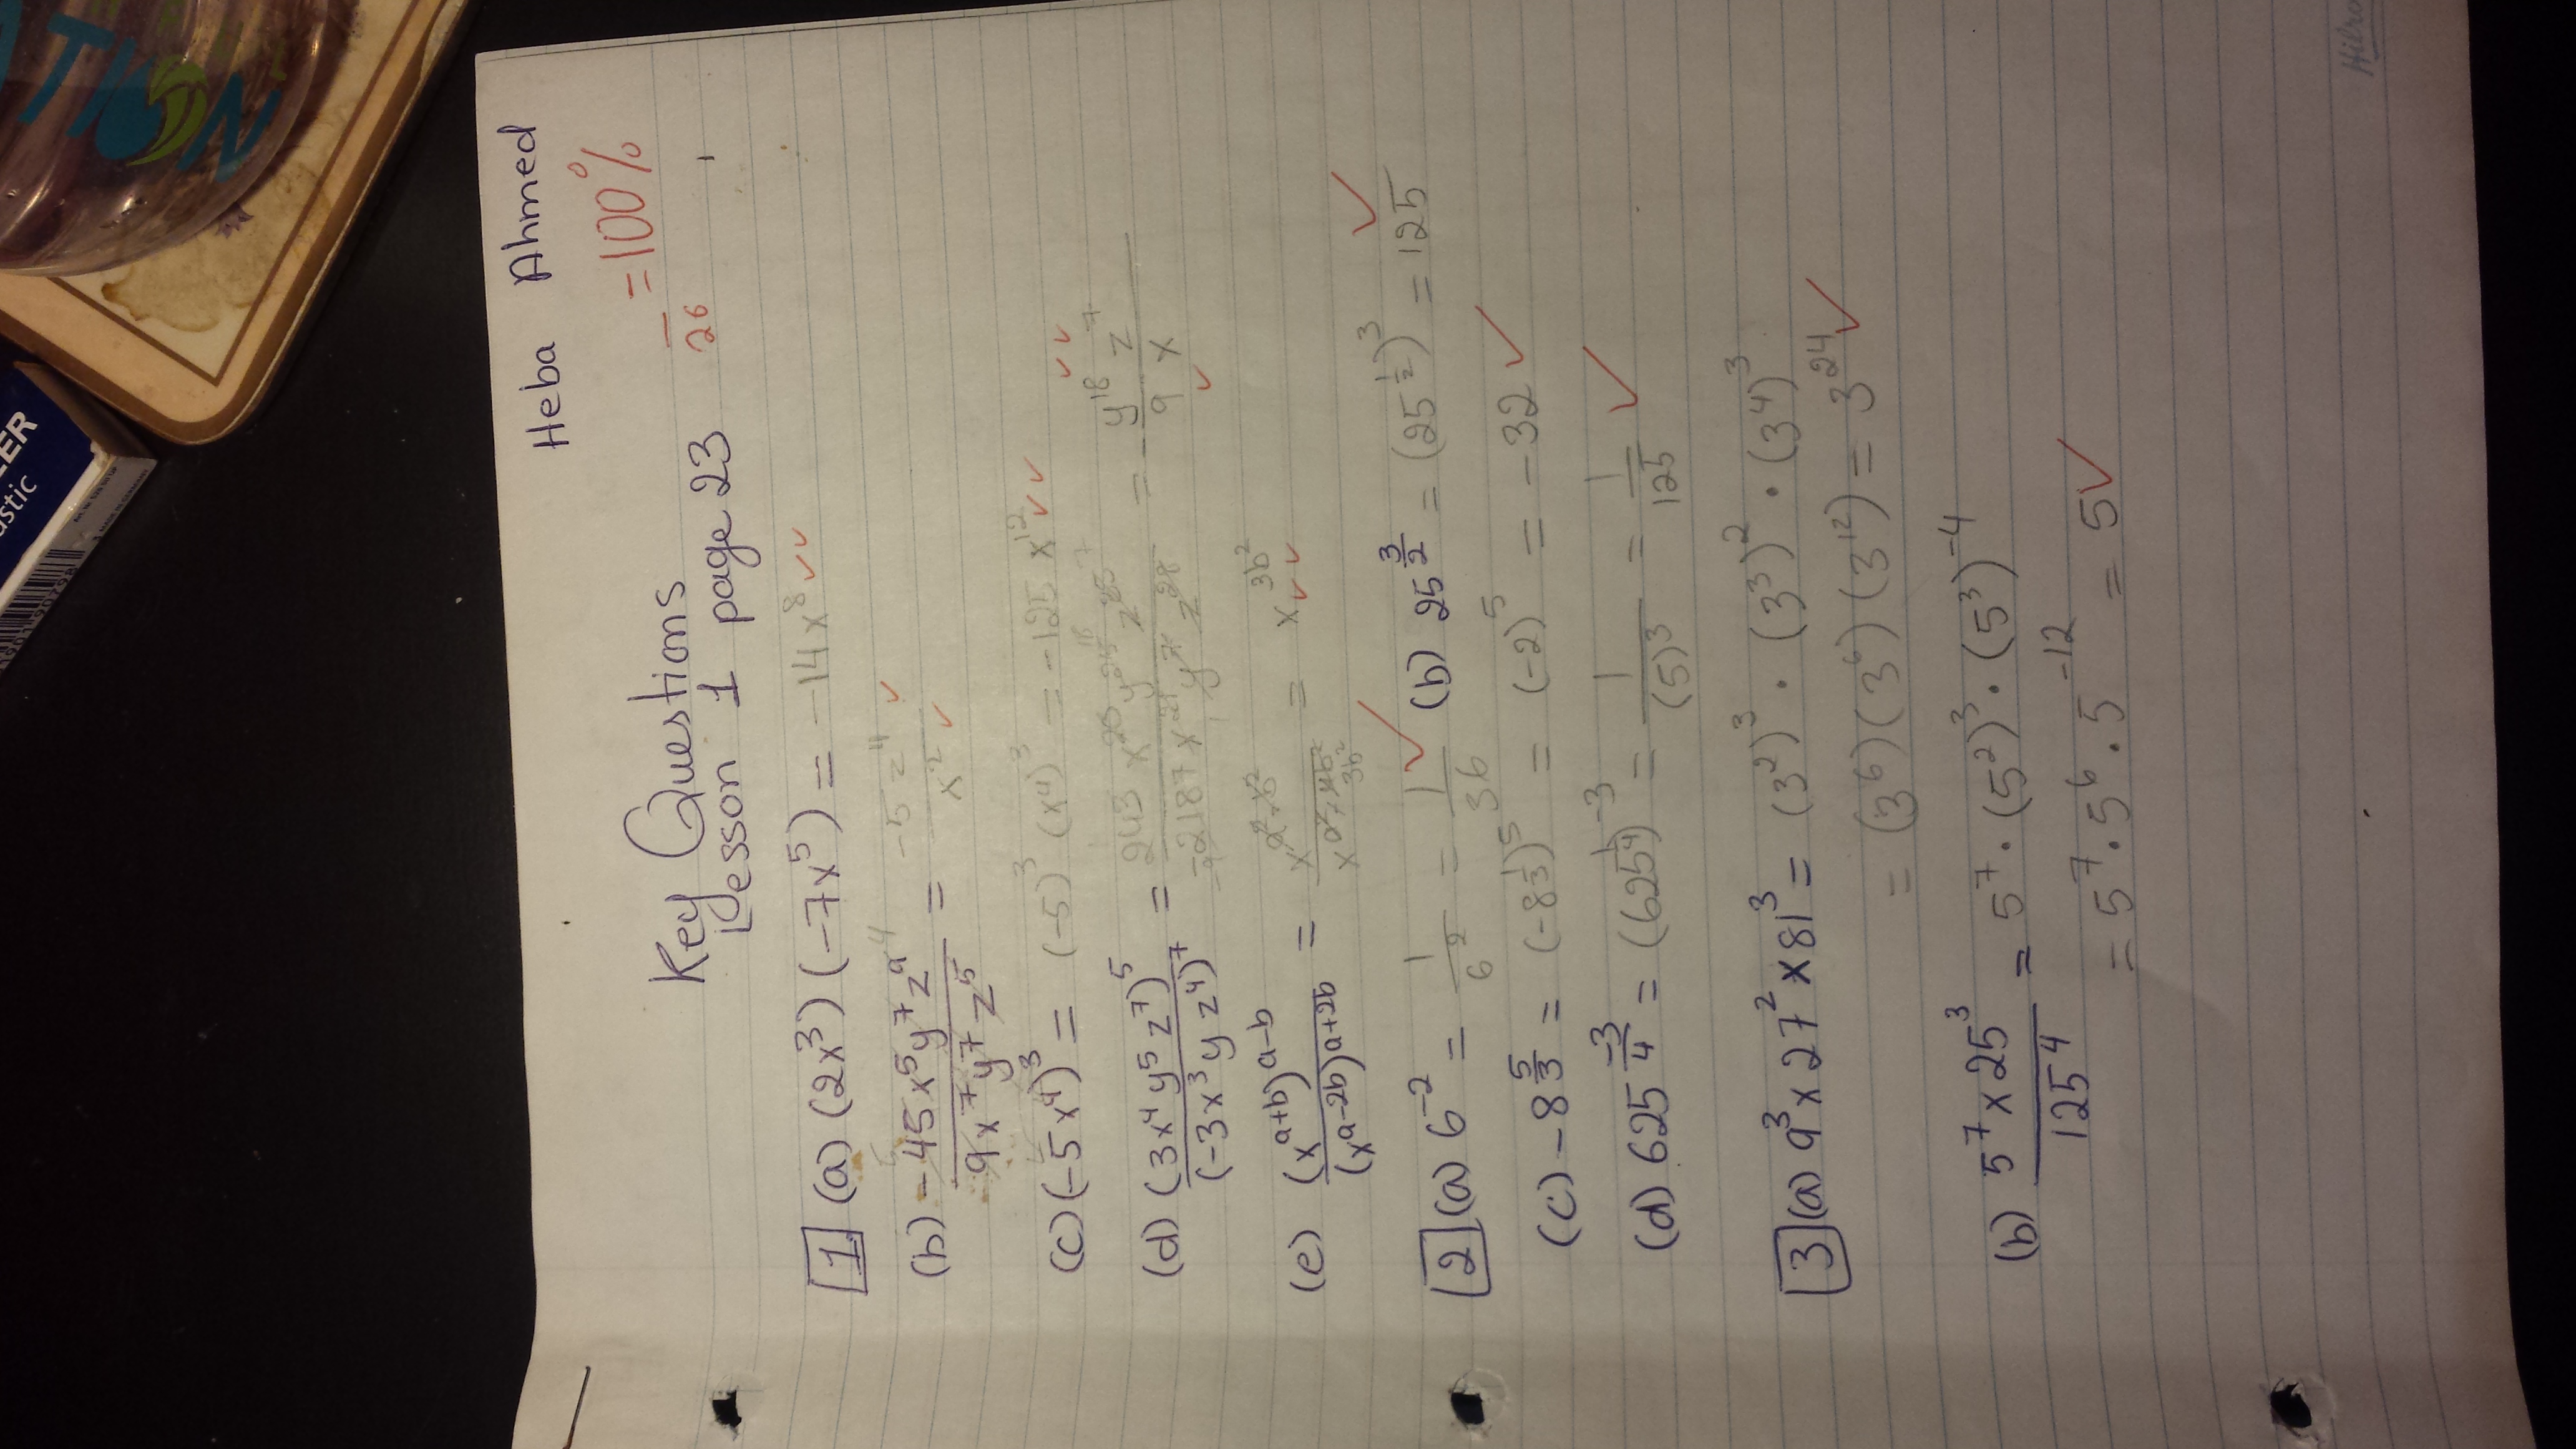 Heba Ahmed
26 = 100%
Key Questions
Lesson 1 page 23
1 (a) (2x³)(-7x⁵) = -14x⁸ ✓✓
(b) -45x⁵y⁷z⁹ / 9x⁷y⁷z⁵ = -5z⁴ / x² ✓✓
(c) (-5x⁴)³ = (-5)³ (x⁴)³ = -125x¹² ✓✓
(d) (3x⁴y⁵z⁷)⁵ / (-3x³yz⁴)⁷ = 243 x²⁰ y²⁵ z³⁵ / -2187 x²¹ y⁷ z²⁸ = - y¹⁸ z⁷ / 9x ✓✓✓
(e) (xᵃ⁺ᵇ)ᵃ⁻ᵇ / (xᵃ⁻²ᵇ)ᵃ⁺²ᵇ = = x^(3b²) ✓✓
2 (a) 6⁻² = 1/6² = 1/36 ✓ (b) 25^(3/2) = (25^(1/2))³ = 125 ✓
(c) -8^(5/3) = (-8^(1/3))⁵ = (-2)⁵ = -32 ✓
(d) 625^(-3/4) = (625^(1/4))⁻³ = 1/(5)³ = 1/125 ✓
3 (a) 9³ x 27² x 81³ = (3²)³ · (3³)² · (3⁴)³
= (3⁶)(3⁶)(3¹²) = 3²⁴ ✓
(b) 5⁷ x 25³ / 125⁴ = 5⁷ · (5²)³ · (5³)⁻⁴
= 5⁷ · 5⁶ · 5⁻¹² = 5 ✓
Hilro
TION
ER
astic